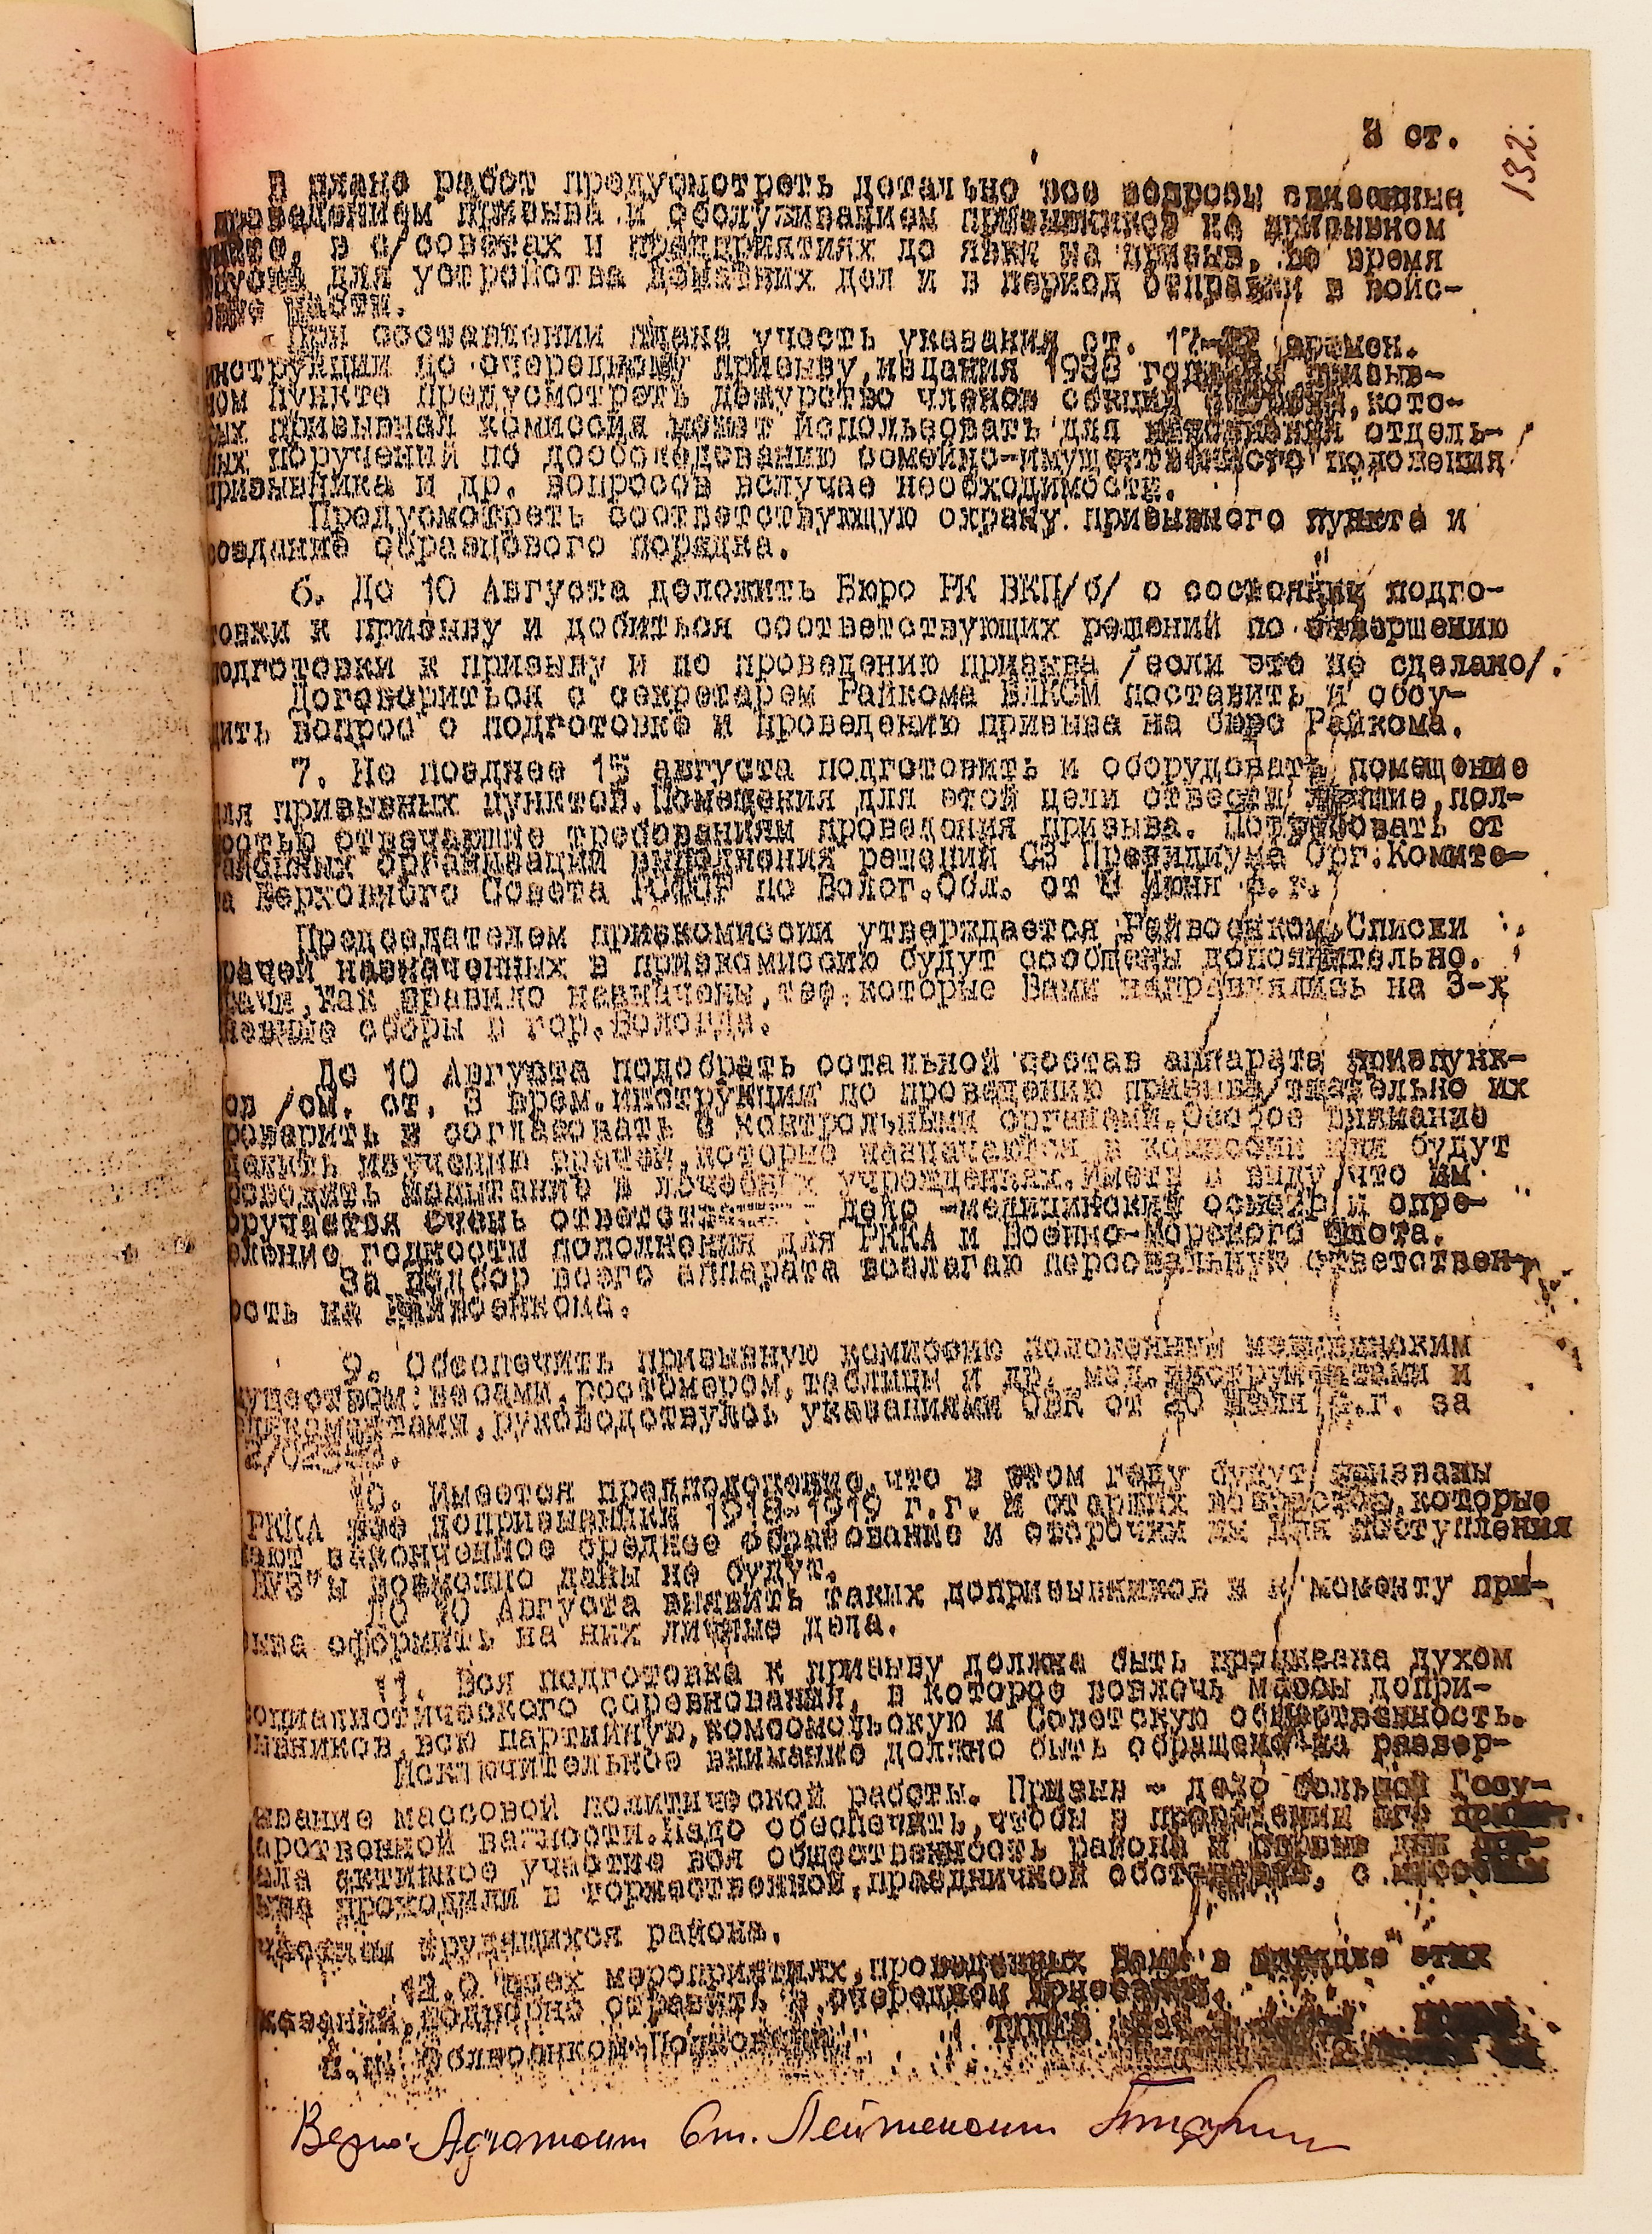 3 ст.
132.
В плане работ предусмотреть детально все вопросы связанные
проведением призыва и обслуживанием призывников на призывном
в с/советах и предприятиях до явки на призыв, во время
для устройства домашних дел и в период отправки в войс-
части.
При составлении плана учесть указания ст. 17- времен.
инструкции по очередному призыву, издания 1938 года. На призыв-
ном пункте предусмотреть дежурство членов секции, кото-
рых призывная комиссия может использовать для выполнения отдель-
ных поручений по дообследованию семейно-имущественного положения
призывника и др. вопросов вслучае необходимости.
Предусмотреть соответствующую охрану призывного пункта и
создание образцового порядка.
6. До 10 Августа доложить Бюро РК ВКП/б/ о состоянии подго-
товки к призыву и добиться соответствующих решений по завершению
подготовки к призыву и по проведению призыва /если это не сделано/.
Договориться с секретарем Райкома ВЛКСМ поставить и обсу-
дить вопрос о подготовке и проведению призыва на бюро Райкома.
7. Не позднее 15 августа подготовить и оборудовать помещение
для призывных пунктов. Помещения для этой цели отвести лучшие, пол-
ностью отвечающие требованиям проведения призыва. Потребовать от
районных организаций выполнения решений СЗ Президиума Орг.Комите-
та Верховного Совета РСФСР по Волог.Обл. от Июня с.г.
Председателем призкомиссии утверждается Райвоенком. Списки
врачей назначенных в призкомиссию будут сообщены дополнительно.
Врачи, как правило назначены, тее, которые Вами направлялись на 3-х
дневные сборы в гор. Вологда.
До 10 Августа подобрать остальной состав аппарата призпунк-
ов /см. ст. 3 врем.инструкции по проведению призыва/ тщательно их
проверить и согласовать с контрольными органами. Особое внимание
изучению врачей, которые назначаются в комиссии или будут
проводить испытание в лечебных учреждениях. Иметь в виду, что им
поручается очень ответст дело -медицинский осмотр и опре-
еление годности пополнения для РККА и Военно-Морского Флота.
За подбор всего аппарата возлагаю персональную ответствен-
ость на Райвоенкома.
9. Обеспечить призывную комиссию положенным медицинским
имуществом: весами, ростомером, таблицы и др. мед.инструментами и
медикаментами, руководствуясь указаниями ОВК от 20 Июля с.г. за
10. Имеется предположение, что в этом году будут призваны
РККА все допризывники 1918-1919 г.г. и старших возрастов, которые
имеют законченное среднее образование и отсрочки им для поступления
ВУЗ"ы возможно даны не будут.
До 10 Августа выявить таких допризывников и к моменту при-
зыва оформить на них личные дела.
11. Вся подготовка к призыву должна быть пронизана духом
социалистического соревнования, в которое вовлечь массы допри-
зывников, всю партийную, комсомольскую и Советскую общественность.
Исключительное внимание должно быть обращено на развер-
ывание массовой политической работы. Призыв - дело большой Госу-
дарственной важности. Надо обеспечить, чтобы в проведении его прини-
мала активное участие вся общественность района и первые дни при-
зыва проходили в торжественной, праздничной обстановке, с массовым
участием трудящихся района.
12. О всех мероприятиях, проведенных Вами в развитие этих
указаний, подробно отразить в очередном донесении.
Облвоенком Полковник
Верно: Адъютант Ст. Лейтенант